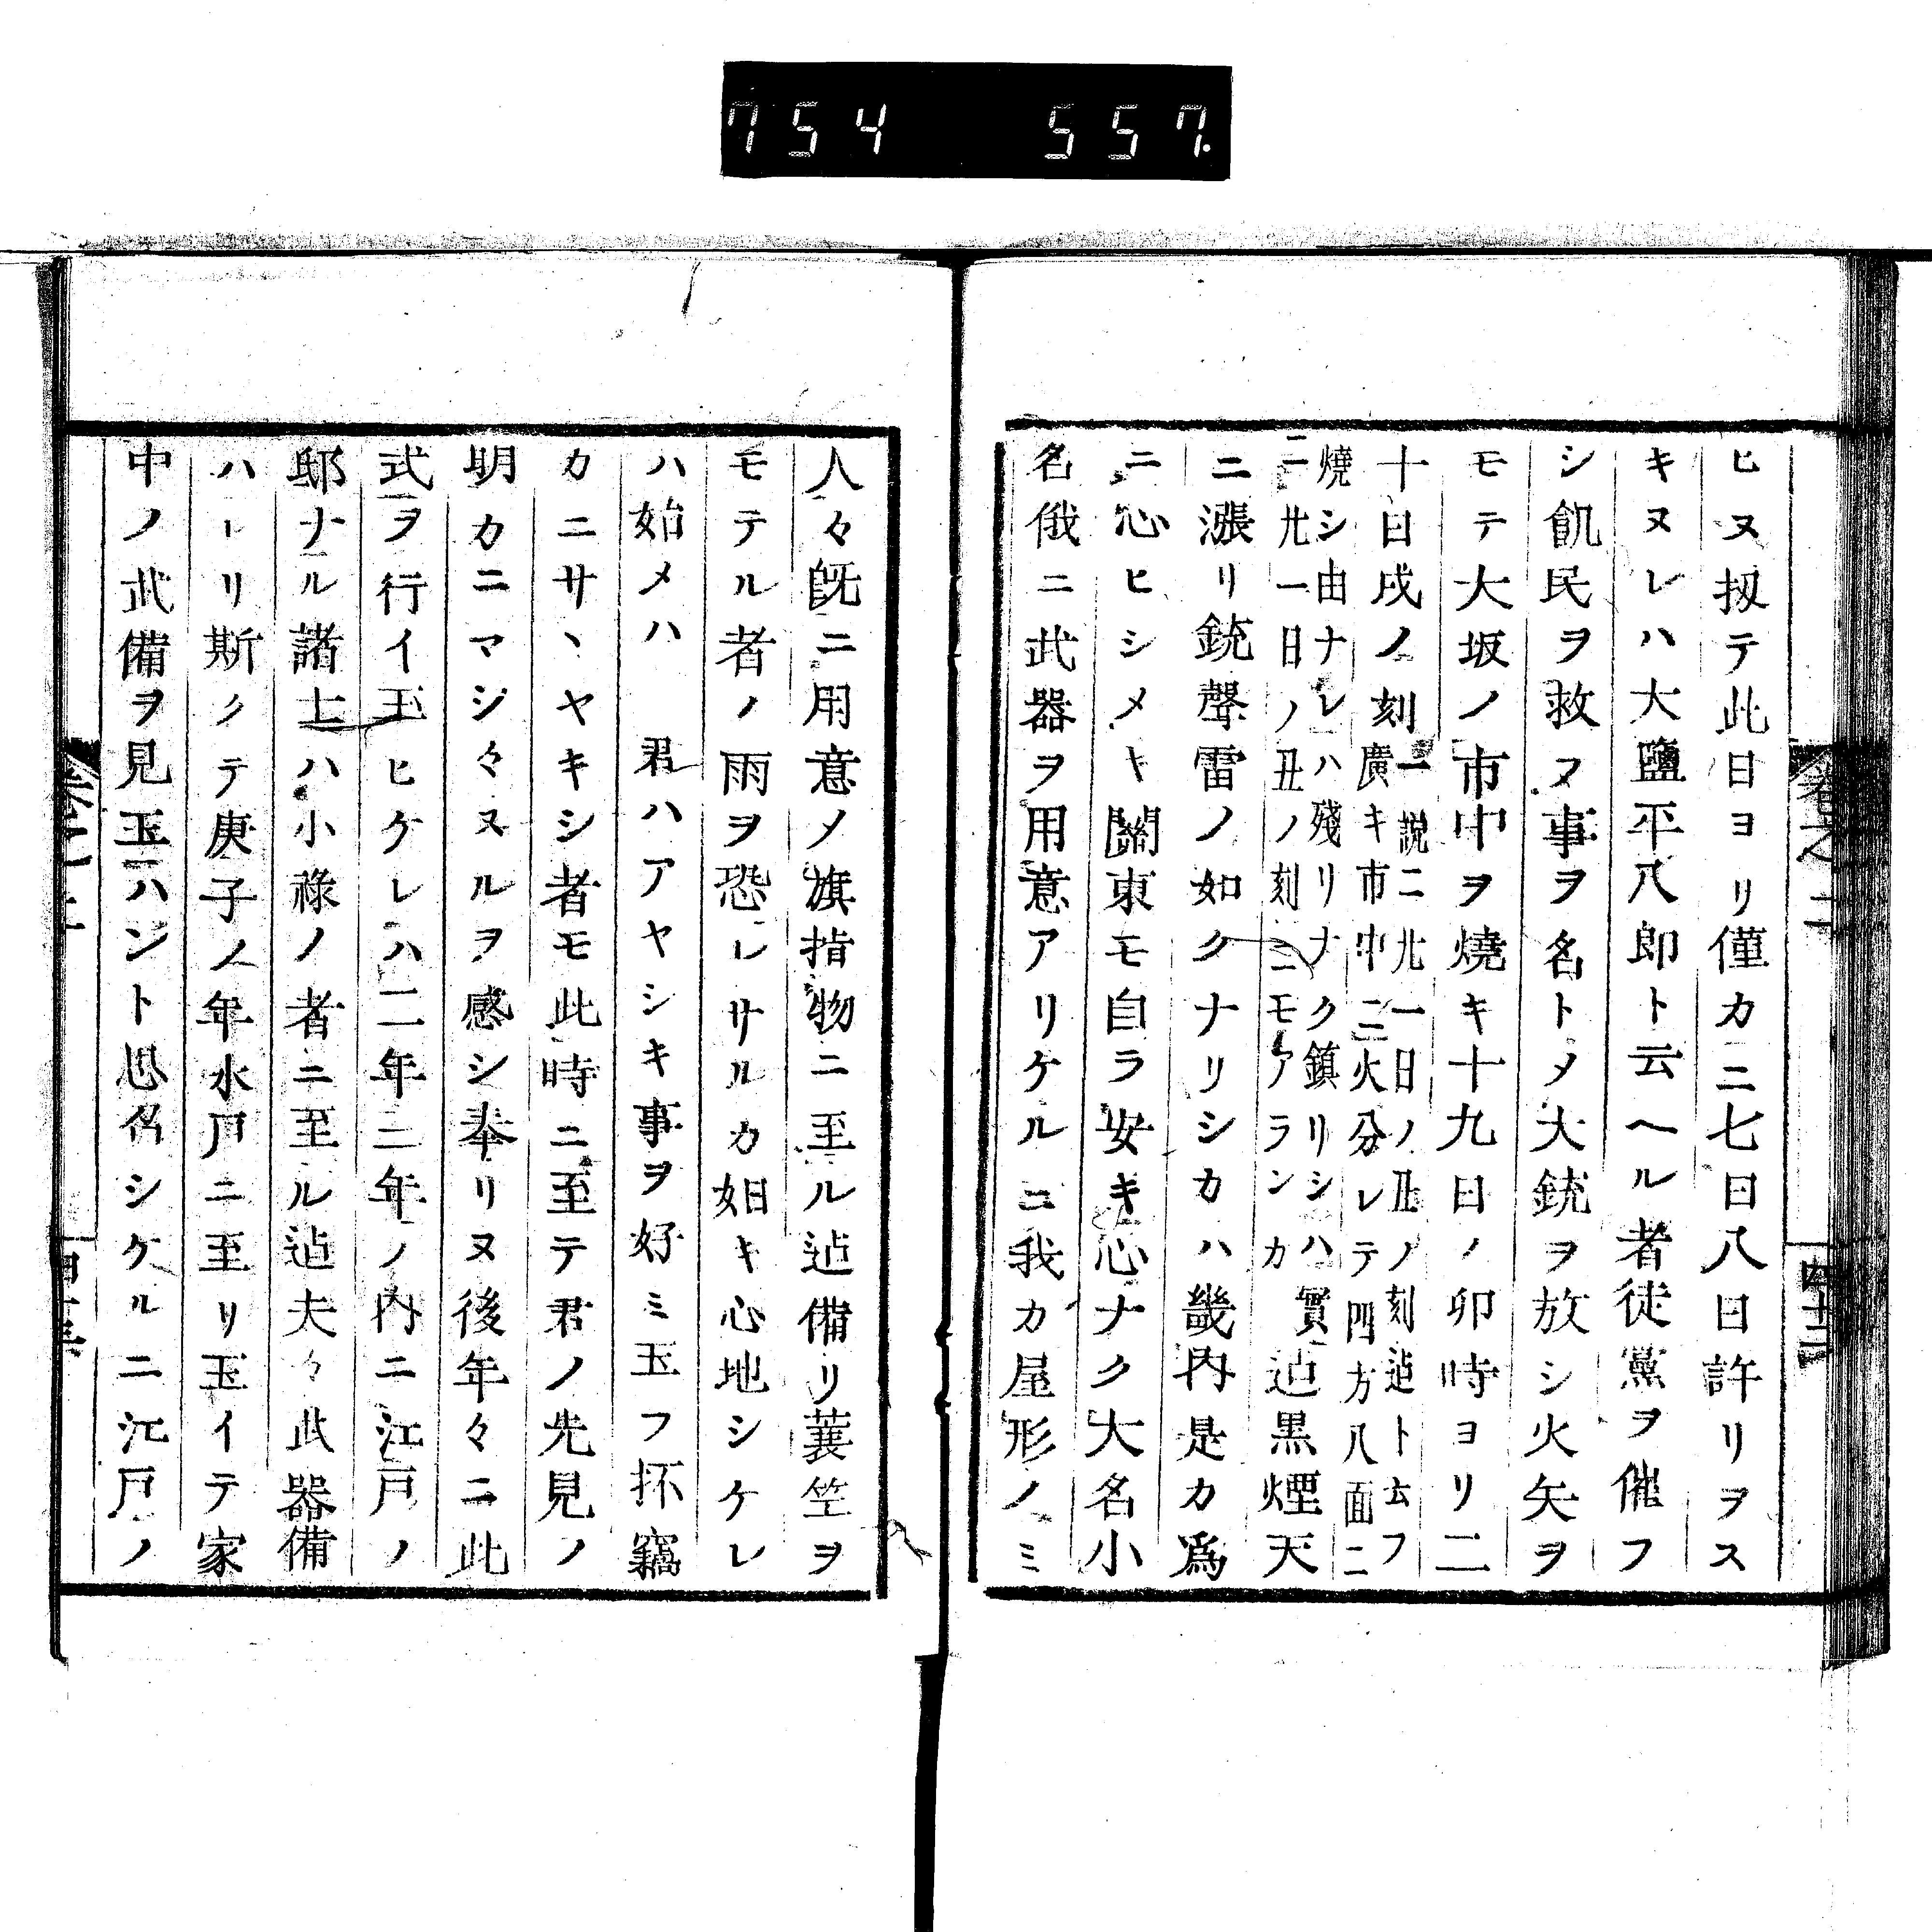 754 557.
ヒヌ扨テ此日ヨリ僅カニ七日八日許リヲス
キヌレハ大鹽平八郎ト云ヘル者徒黨ヲ催フ
シ飢民ヲ救フ事ヲ名トメ大銃ヲ放シ火矢ヲ
モテ大坂ノ市中ヲ燒キ十九日ノ卯時ヨリ二
十日戌ノ刻
一説ニ廿一日ノ丑ノ刻迠ト云フ
廣キ市中ニ火分レテ四方八面ニ
燒シ由ナレハ殘リナク鎮リシハ實
ニ廿一日ノ丑ノ刻ニモアランカ
迠黒煙天
ニ漲リ銃聲雷ノ如クナリシカハ畿内是カ爲
ニ心ヒシメキ關東モ自ラ安キ心ナク大名小
名俄ニ武器ヲ用意アリケルニ我カ屋形ノミ
人々既ニ用意ノ旗指物ニ至ル迠備リ蓑笠ヲ
モテル者ノ雨ヲ恐レサルカ如キ心地シケレ
ハ始メハ 君ハアヤシキ事ヲ好ミ玉フ抔竊
カニサヽヤキシ者モ此時ニ至テ君ノ先見ノ
明カニマシ々ヌルヲ感シ奉リヌ後年々ニ此
式ヲ行イ玉ヒケレハ二年三年ノ内ニ江戸ノ
邸ナル諸士ハ小祿ノ者ニ至ル迠夫々武器備
ハレリ斯クテ庚子ノ年水戸ニ至リ玉イテ家
中ノ武備ヲ見玉ハント思召シケルニ江戸ノ